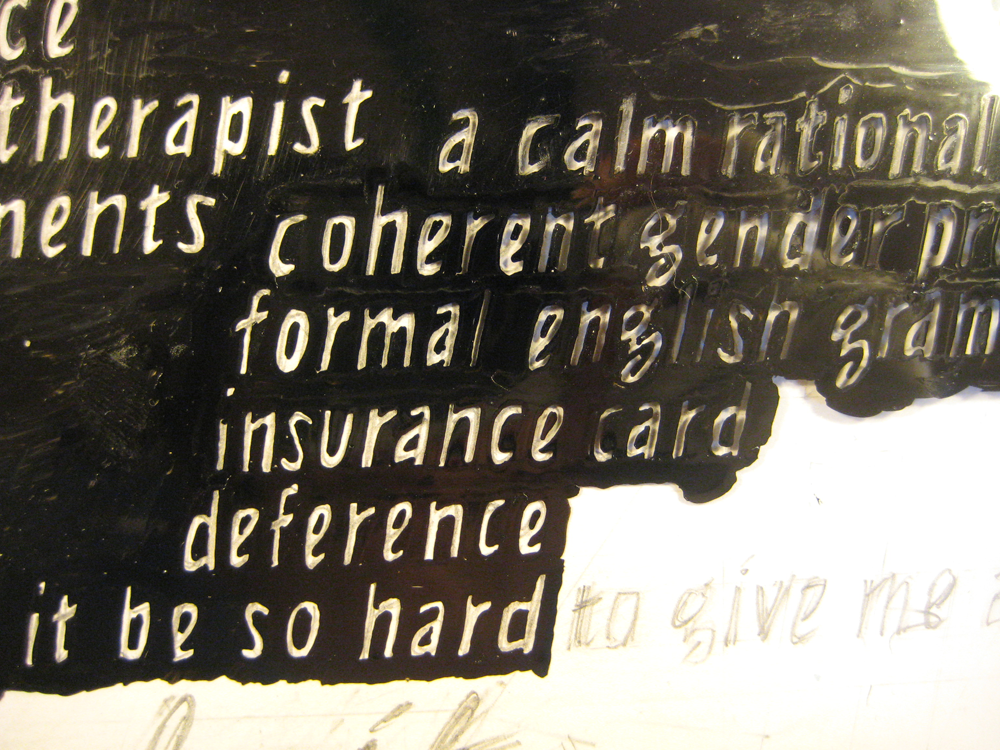 ce
therapist a calm rational
ments coherent gender pre
formal english gram
insurance card
deference
it be so hard to give me a